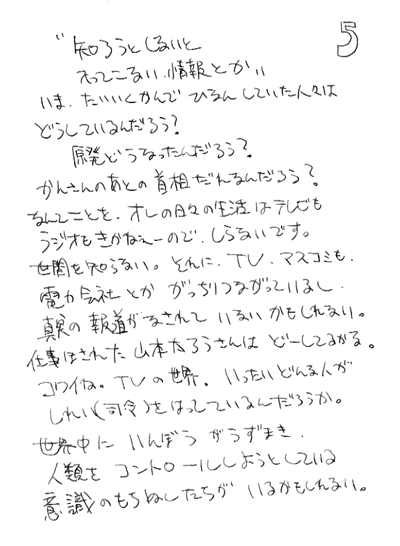 5
"知ろうとしないと
わってこない情報とか"
いま、たいいくかんで ひなんしていた人々は
どうしているんだろう?
原発どうなったんだろう?
かんさんのあとの首相だれなんだろう?
なんてことを、オレの日々の生活はテレビも
ラジオもきかねえーので、しらないです。
世間を知らない。それに、TV、マスコミも、
電力会社とか がっちりつながっているし、
真実の報道がなされて いないかもしれない。
仕事ほされた山本太ろうさんは どーしてるかな。
コワイね。TVの世界、いったいどんな人が
しれい(司令)をはっしているんだろうか。
世界中に いんぼう がうずまき、
人類を コントロールしようとしている
意識のもちぬしたちが いるかもしれない。